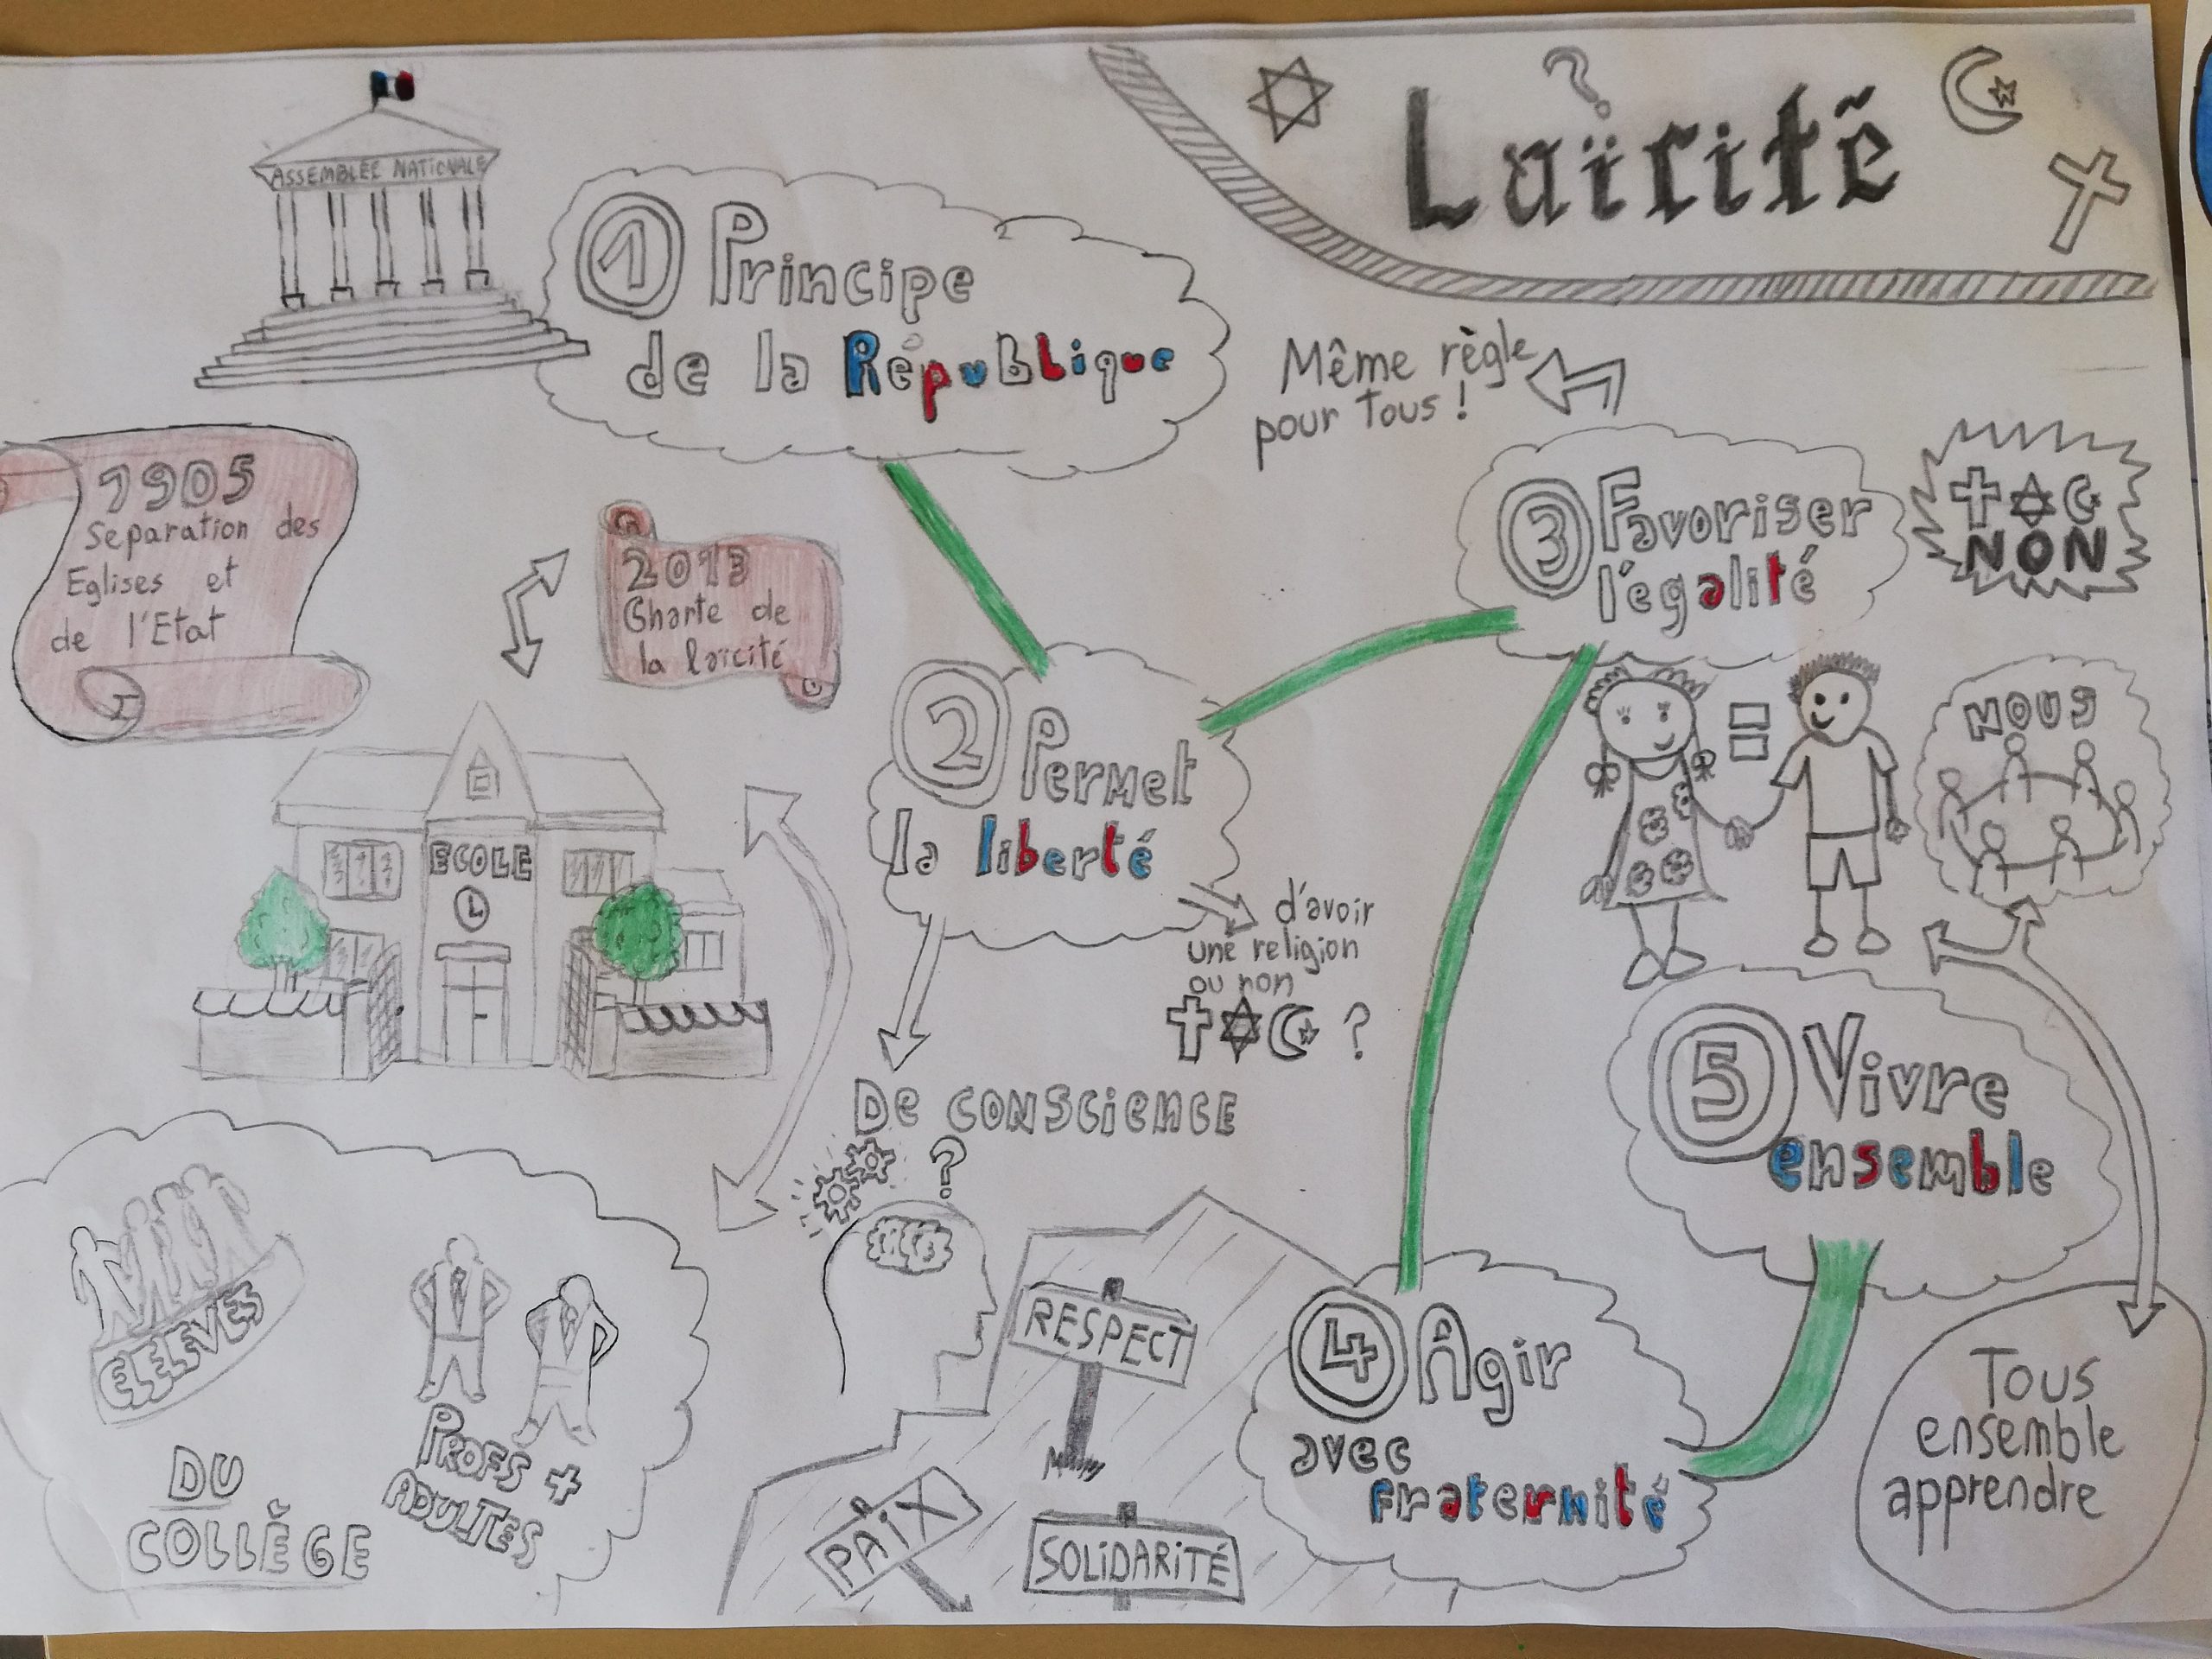 ?
Laïcité
ASSEMBLÉE NATIONALE
1 Principe
de la République
1905
Separation des
Eglises et
de l'Etat
2013
Charte de
la laïcité
ECOLE
2 Permet
la liberté
d'avoir
une religion
ou non
?
De conscience
?
Même règle
pour tous !
3 Favoriser
l'égalité
NON
=
NOUS
4 Agir
avec
fraternité
RESPECT
PAIX
SOLIDARITÉ
5 Vivre
ensemble
Tous
ensemble
apprendre
ELEVES
PROFS +
ADULTES
DU
COLLÈGE